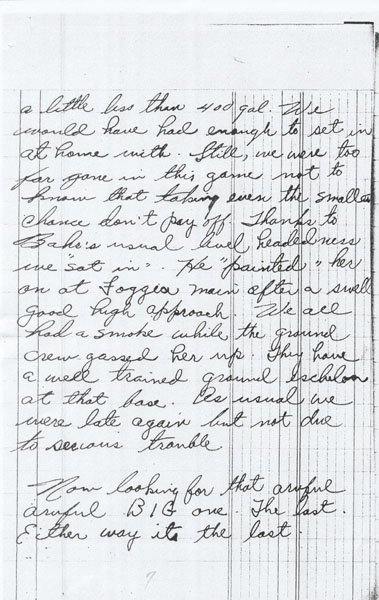 a little less than 400 gal. We
would have had enough to set in
at home with. Still, we were too
far gone in this game not to
know that taking even the smallest
chance don't pay off. Thanks to
Bahr's usual level headedness
we "sat in". He "painted" her
on at Foggia main after a swell
good high approach. We all
had a smoke while the ground
crew gassed her up. They have
a well trained ground eschelon
at that base. As usual we
were late again but not due
to serious trouble
Now looking for that awful
awful BIG one. The last.
Either way its the last.
7